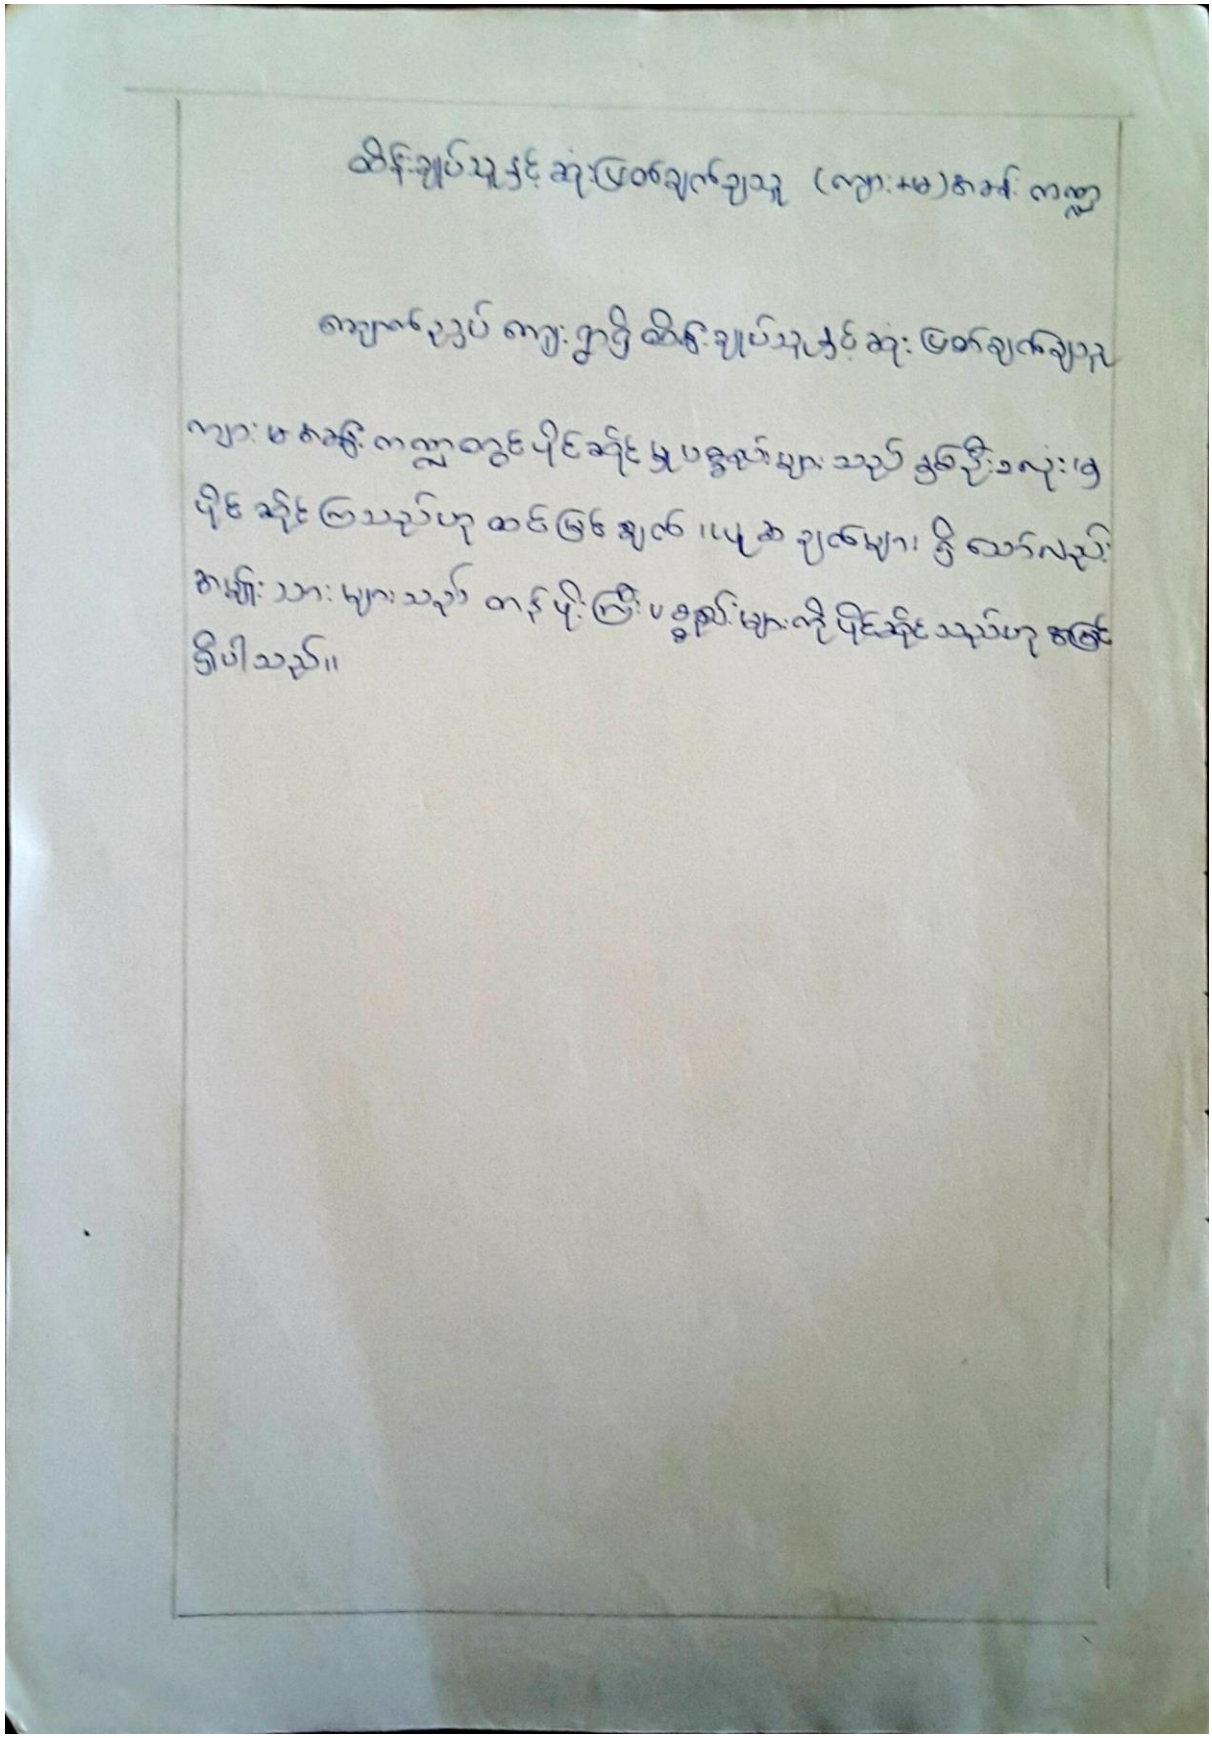 ထိန်းချုပ်သူနှင့် ဆုံးဖြတ်ချက်ချသူ (ကျား+မ) အခန်း ကဏ္ဍ
ကျောက်ညှပ် ကျေးရွာရှိ ထိန်းချုပ်သူနှင့် ဆုံးဖြတ်ချက်ချသူ
ကျား မ အခန်းကဏ္ဍတွင် ပိုင်ဆိုင်မှု ပစ္စည်းများသည် နှစ်ဦးစလုံးမှ
ပိုင်ဆိုင်ကြသည်ဟု ထင်မြင်ချက် ယူဆချက်များ ရှိသော်လည်း
အမျိုးသားများသည် တန်ဖိုးကြီးပစ္စည်းများကို ပိုင်ဆိုင်သည်ဟု အမြင်
ရှိပါသည်။